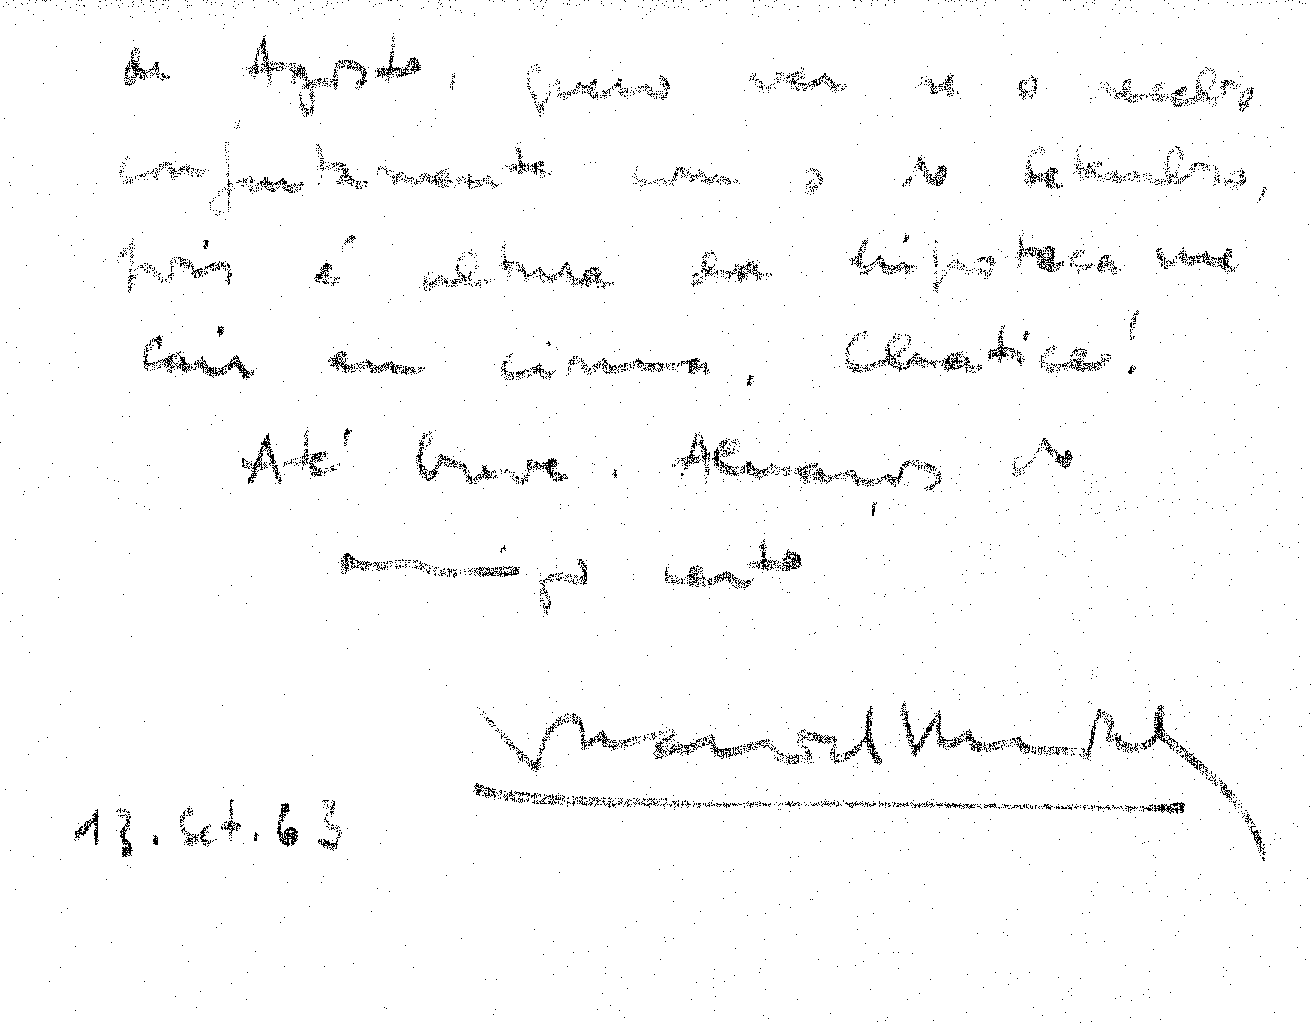 de Agosto. Quero ver se o recebo
conjuntamente com o de Setembro,
pois é altura da hipoteca me
cair em cima. Chatice!
Até breve. Abraços do
amigo certo
13. Set. 63